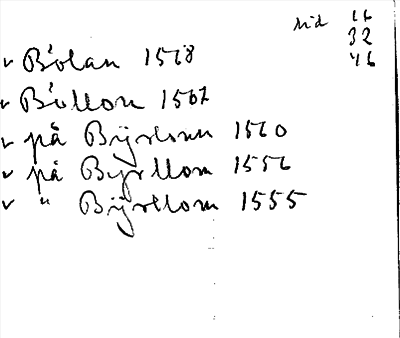 sid 16
32
46
✓ Bölan 1568
✓ Böllon 1567
✓ på Bÿrlomm 1560
✓ på Byrllom 1556
✓ " Bÿrellom 1555